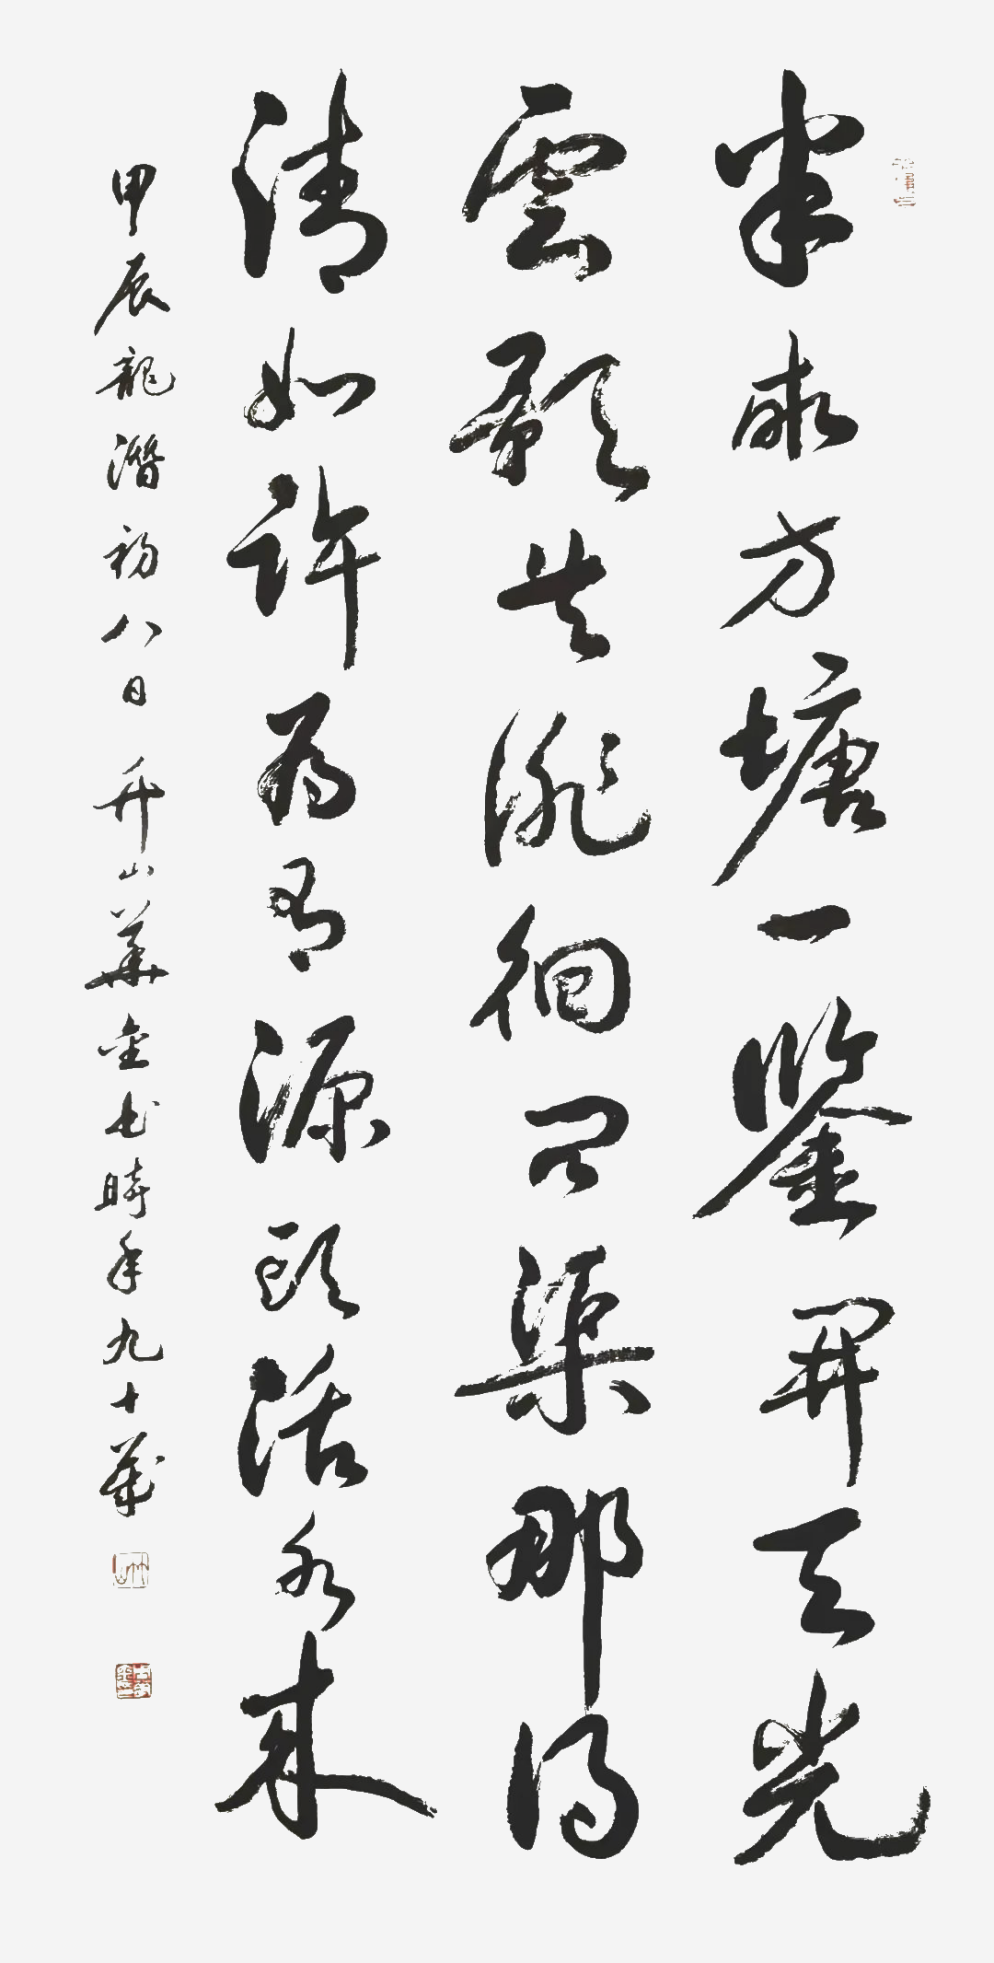 半畝方塘一鑒開天光
雲影共徘徊問渠那得
清如許為有源頭活水來
甲辰龍潛初八日 升山華奎書時年九十歲